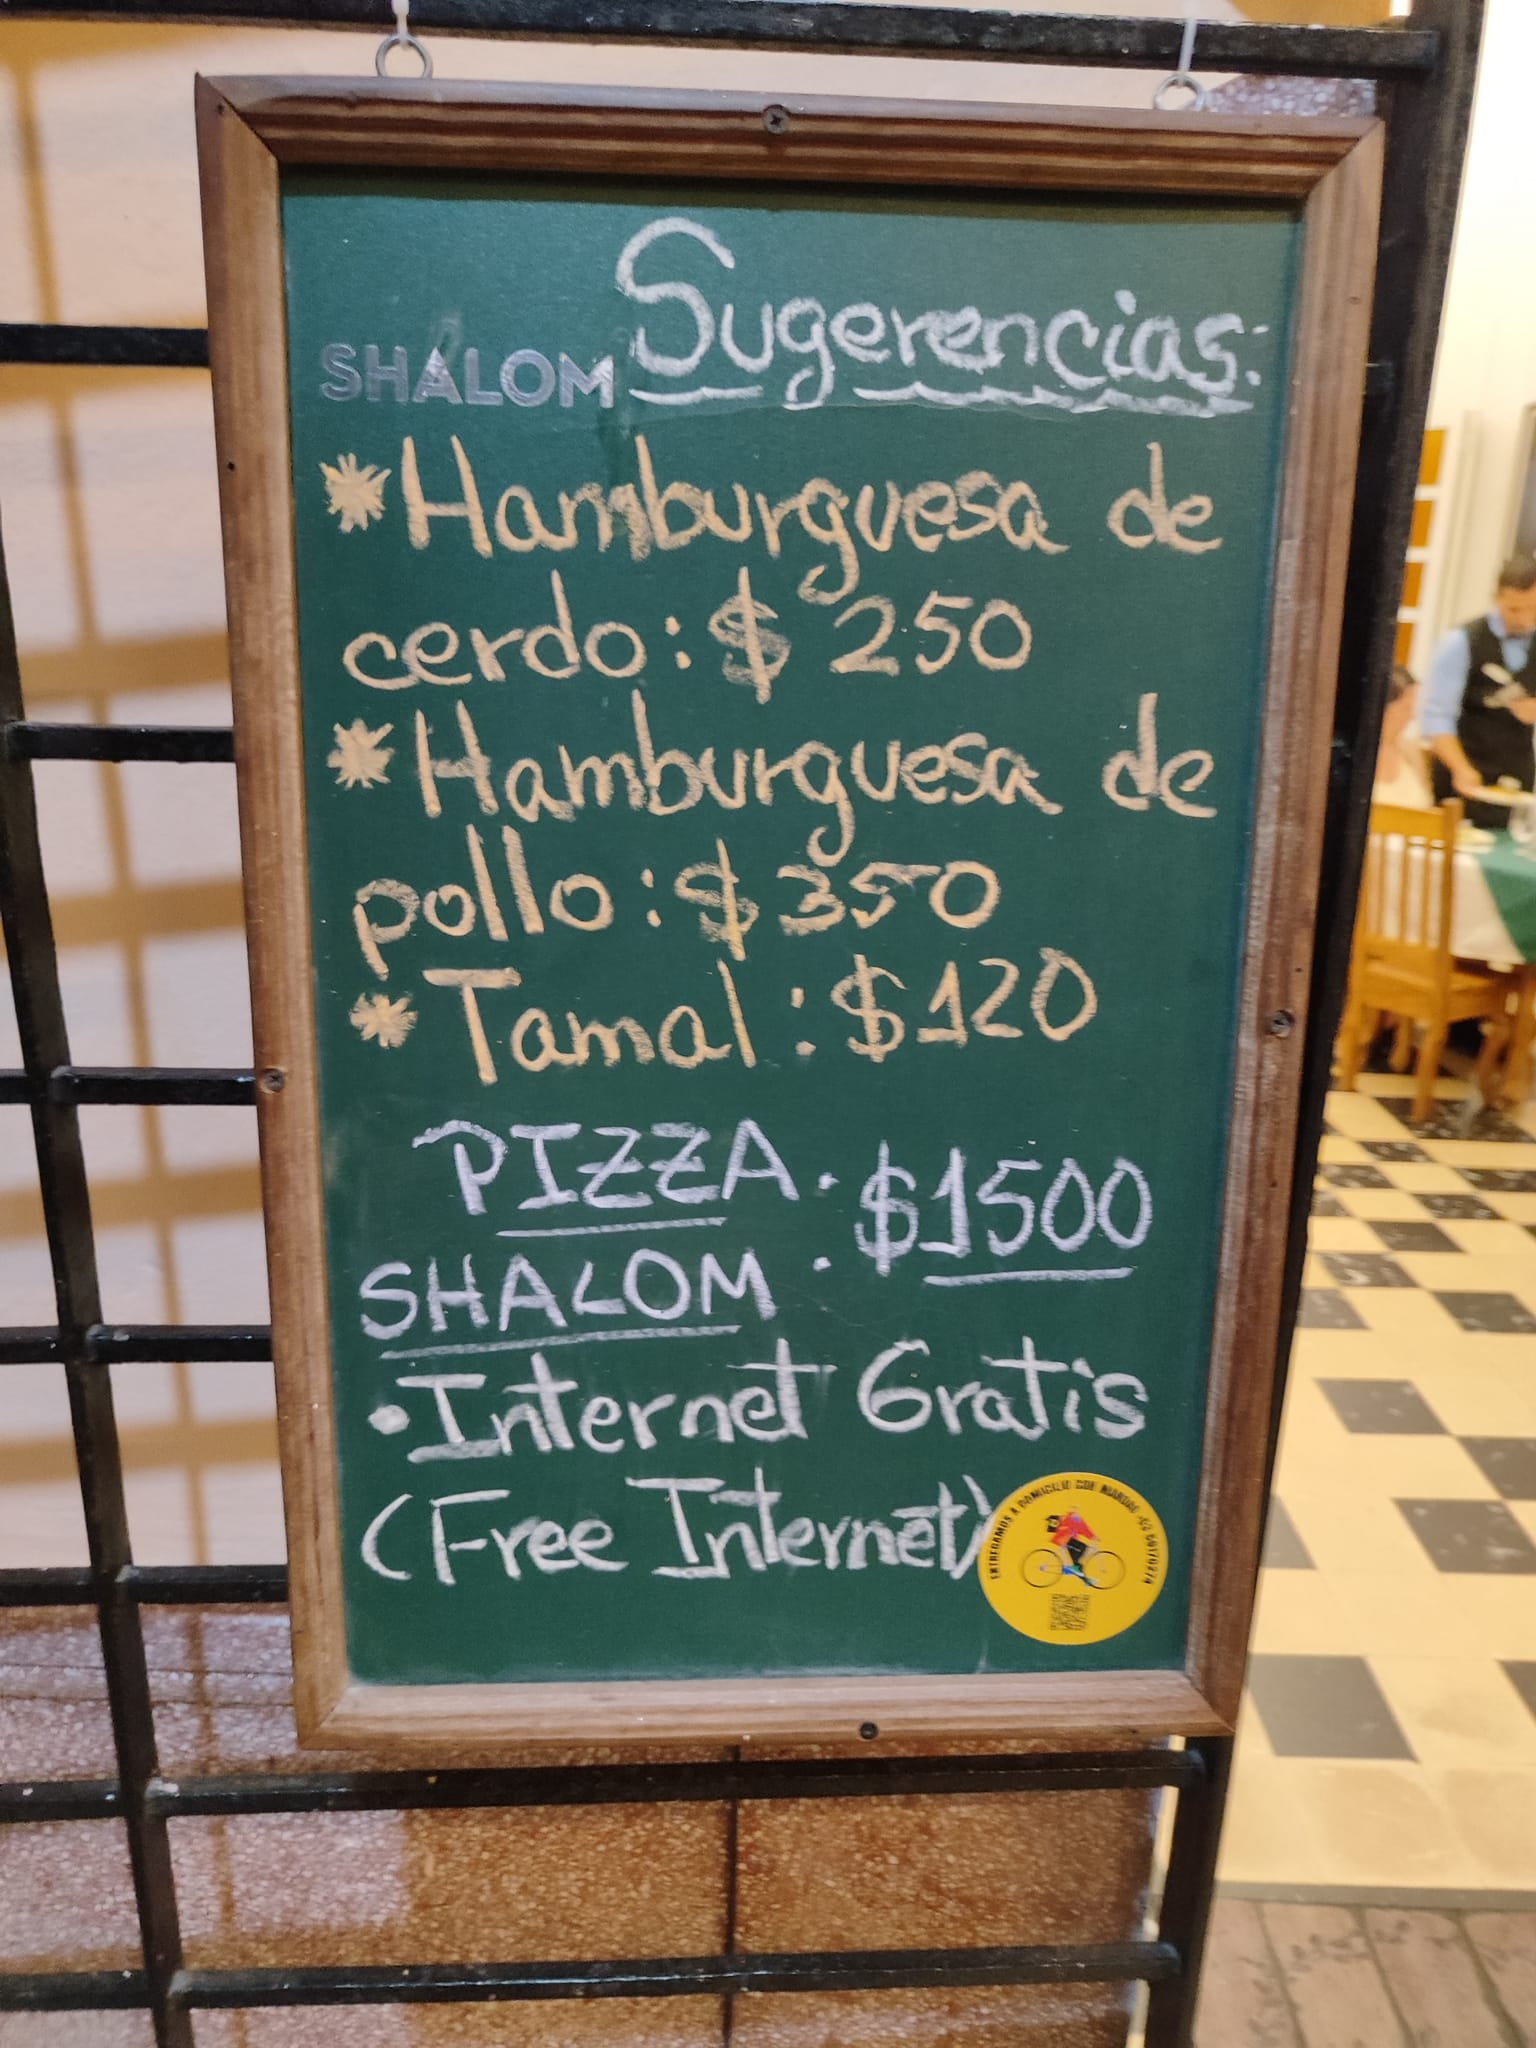 SHALOM Sugerencias:
*Hamburguesa de
cerdo: $ 250
*Hamburguesa de
pollo: $ 350
*Tamal: $120
PIZZA
SHALOM : $1500
•Internet Gratis
(Free Internet)
ENTREGAMOS A DOMICILIO CON MANDAO